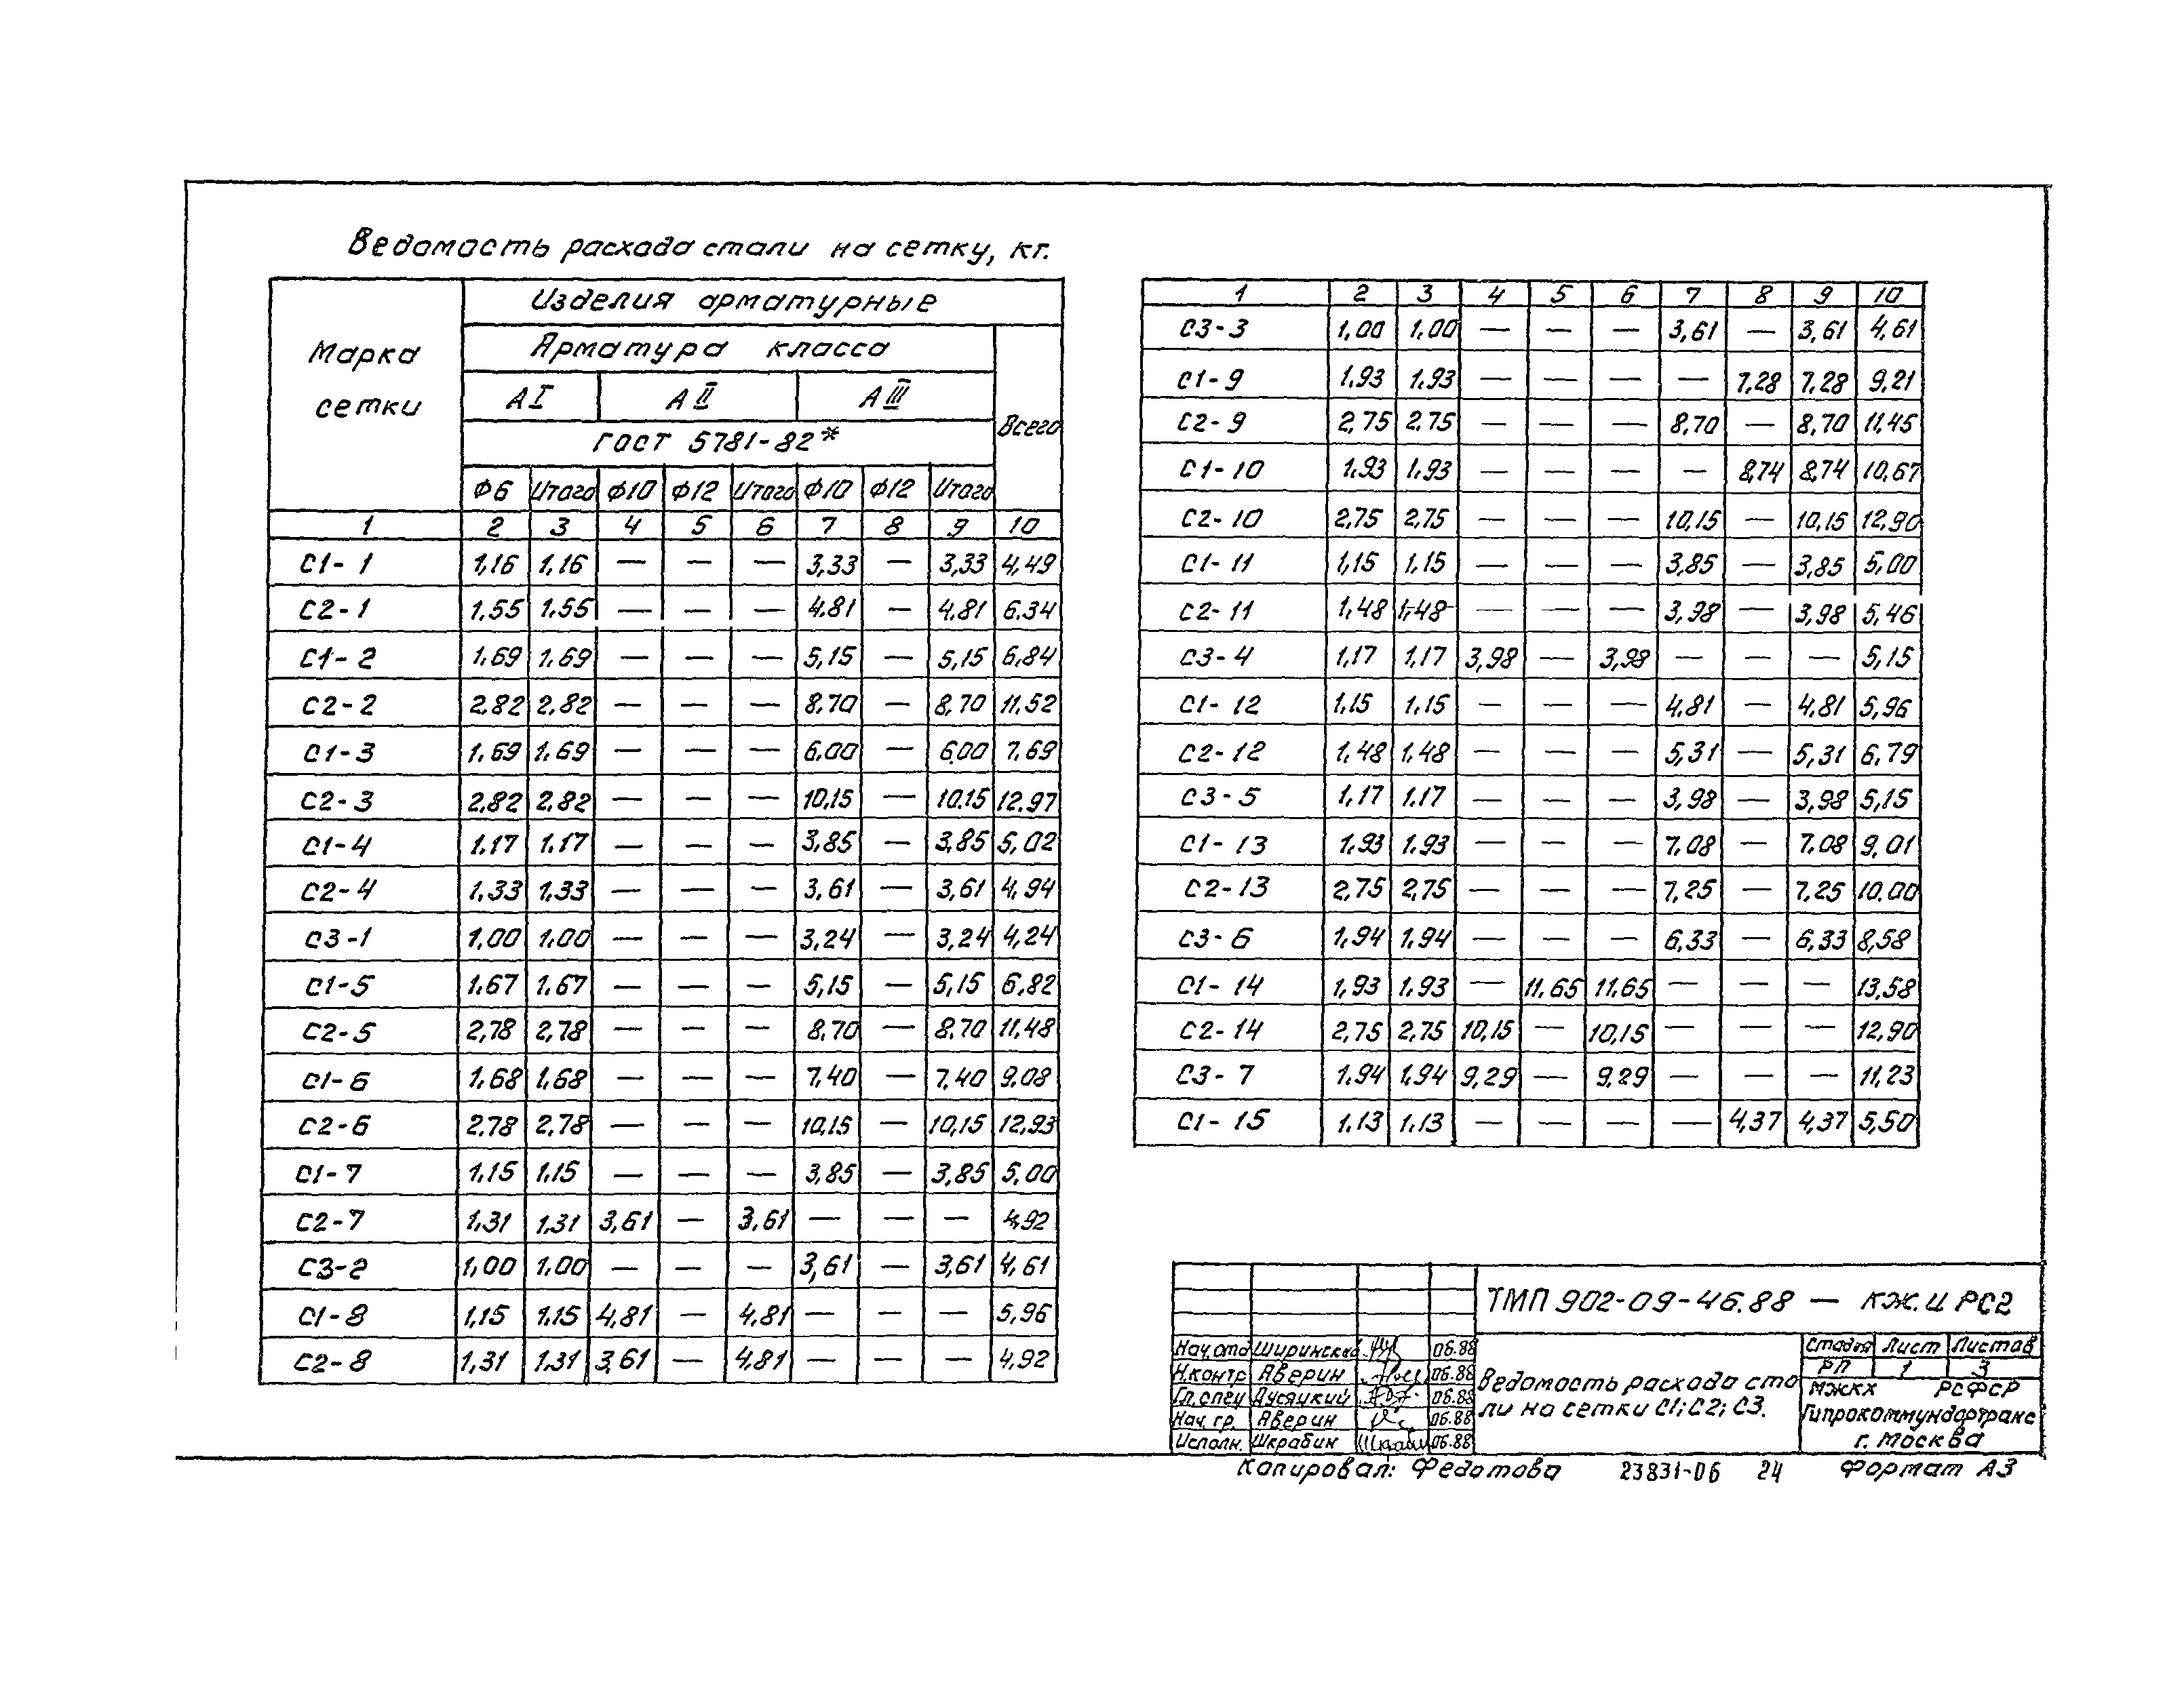 Ведомость расхода стали на сетку, кг.
Марка сетки
Изделия арматурные
Арматура класса
Всего
А I А II А III
ГОСТ 5781-82*
Ф6 Итого Ф10 Ф12 Итого Ф10 Ф12 Итого
1 2 3 4 5 6 7 8 9 10
С1-1 1,16 1,16 — — — 3,33 — 3,33 4,49
С2-1 1.55 1.55 — — — 4.81 — 4.81 6.34
С1-2 1.69 1.69 — — — 5,15 — 5,15 6,84
С2-2 2.82 2.82 — — — 8.70 — 8.70 11.52
С1-3 1.69 1.69 — — — 6.00 — 6.00 7.69
С2-3 2.82 2.82 — — — 10,15 — 10.15 12.97
С1-4 1.17 1.17 — — — 3.85 — 3.85 5,02
С2-4 1.33 1.33 — — — 3,61 — 3,61 4,94
С3-1 1,00 1,00 — — — 3,24 — 3,24 4,24
С1-5 1.67 1.67 — — — 5,15 — 5,15 6,82
С2-5 2,78 2,78 — — — 8.70 — 8.70 11.48
С1-6 1.68 1,68 — — — 7.40 — 7.40 9.08
С2-6 2.78 2.78 — — — 10,15 — 10,15 12,93
С1-7 1.15 1.15 — — — 3,85 — 3,85 5,00
С2-7 1,31 1,31 3,61 — 3,61 — — — 4,92
С3-2 1,00 1,00 — — — 3,61 — 3,61 4,61
С1-8 1,15 1.15 4,81 — 4,81 — — — 5,96
С2-8 1,31 1.31 3,61 — 4,81 — — — 4,92
1 2 3 4 5 6 7 8 9 10
С3-3 1,00 1.00 — — — 3,61 — 3,61 4,61
С1-9 1.93 1.93 — — — — 7.28 7.28 9.21
С2-9 2,75 2.75 — — — 8,70 — 8,70 11,45
С1-10 1.93 1.93 — — — — 8,74 8,74 10,67
С2-10 2,75 2,75 — — — 10,15 — 10,15 12,90
С1-11 1,15 1.15 — — — 3,85 — 3,85 5,00
С2-11 1,48 1,48 — — — 3,98 — 3,98 5,46
С3-4 1,17 1,17 3,98 — 3,98 — — — 5,15
С1-12 1.15 1.15 — — — 4,81 — 4,81 5,96
С2-12 1,48 1,48 — — — 5,31 — 5,31 6,79
С3-5 1,17 1.17 — — — 3,98 — 3,98 5,15
С1-13 1.93 1.93 — — — 7.08 — 7.08 9,01
С2-13 2,75 2,75 — — — 7,25 — 7,25 10.00
С3-6 1.94 1.94 — — — 6,33 — 6,33 8,58
С1-14 1,93 1.93 — 11.65 11.65 — — — 13,58
С2-14 2,75 2,75 10,15 — 10,15 — — — 12,90
С3-7 1.94 1,94 9,29 — 9,29 — — — 11,23
С1-15 1.13 1.13 — — — — 4,37 4,37 5,50
ТМП 902-09-46.88 — КЖ.И РС2
Нач.отд Ширинский 06.88
Н.контр Аверин 06.88
Гл.спец Дусяцкий 06.88
Нач. гр. Аверин 06.88
Исполн. Шкрабин 06.88
Ведомость расхода ста
ли на сетки С1; С2; С3.
Стадия Лист Листов
РП 1 3
МЖКХ РСФСР
Гипрокоммундортранс
г. Москва
Копировал: Федотова 23831-06 24 Формат А3